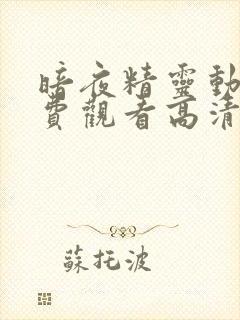 暗夜精靈動
費觀看高清
蘇托波